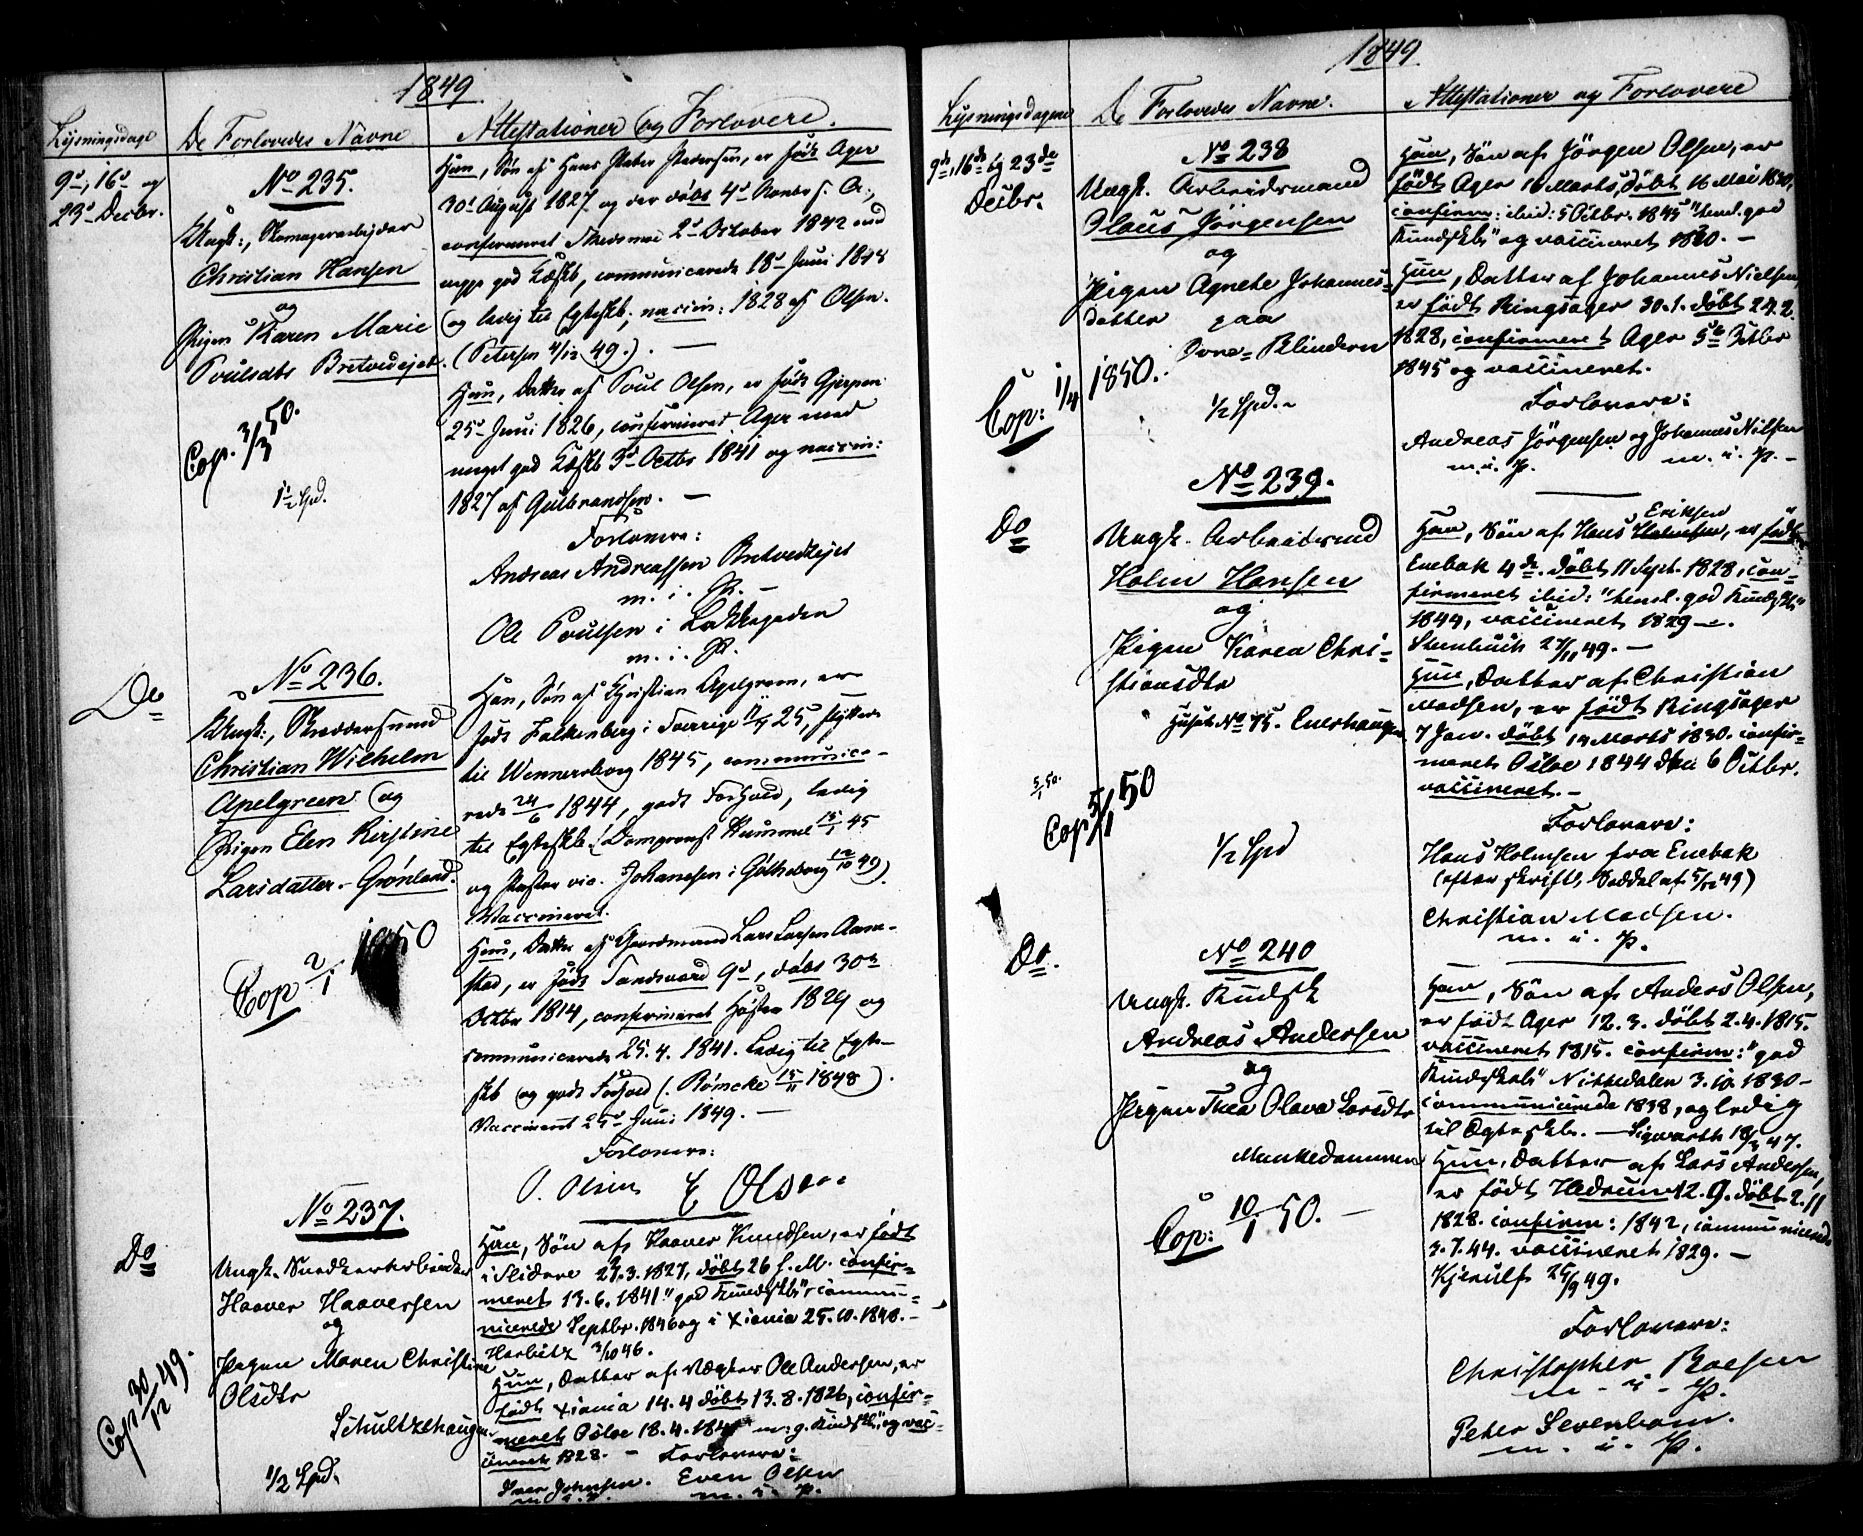 1849
Lysningsdage
De Forlovedes Navne
Attestationer og Forlovere.
9de, 16de og
23de Decbr.
No 235.
Ungk:, Skomagerarbejder
Christian Hansen
og
Pigen Karen Marie
Poulsdtr Bretvedejet.
Cop. 3/3 50.
1½ Spd.
Han, Søn af Hans Peter Pedersen, er født Ager
30te August 1827 og der døbt 4de Novbr s. A.,
confirmeret Skedsmoe 2de October 1842 med
megt god Kdskb, communicerede 18de Juni 1848
og ledig til Egteskb; vaccin: 1828 af Olsen.
(Petersen 4/12 49.). —
Hun, Datter af Poul Olsen, er født Gjerpen
25de Juni 1826, confirmeret Ager med
meget god Kdskb 3de Octbr 1841 og vaccin:
1827 af Gulbrandsen. —
Forlovere:
Andreas Andreassen Bretvedejet
m. i. P. —
Ole Poulsen i Lakkegaden
m. i. P.
Do
No 236.
Ungk:, Skreddersvend
Christian Wilhelm
Apelgreen og
Pigen Elen Kirstine
Larsdatter - Grønland.
Cop 2/1 1850
Han, Søn af Christian Apelgreen, er
født Falkenberg i Sverrige 25, flyttede
til Wennersborg 1845, communice-
rede 24/6 1844, godt Forhold, ledig
til Egteskb. (Domprovst Hummel 15/1 45
og Pastor vic. Johansen i Götheborg 12/10 49).
Vaccineret.
Hun, Datter af Gaardmand Lars Larsen Aame-
stad, er født Sandsværd 9de, døbt 30te
Octbr 1814, confirmeret Høsten 1829 og
communicerede 25. 4. 1841. Ledig til Egte-
skb og godt Forhold (. Rømcke 15/11 1848).
Vaccineret 25de Juni 1849. —
Forlovere:
O. Olsen E Olsen
Do
No 237.
Ungk. Snedkerarbeider
Haaver Haaversen
og
Pigen Maren Christine
Olsdtr
Schultzehaugen
Cop 30/12 49.
1/2 Spd.
Han, Søn af Haaver Knudsen, er født
i Slidre 27.3.1827, døbt 26 s. M. confir-
meret 13.6.1841 "god Kundskb", commu-
nicerede Septbr. 1846 og i Xiania 25.10.1848. —
Herbitz 3/10 46.
Hun, Datter af Vægter Ole Andersen, er
født Xiania 14.4 døbt 13.8.1826, confir-
meret Oslo 18.4.1841 "m: g. Kundsk:", og vac-
cineret 1828. — Forlovere:
Iver Johnsen. Even Olsen
m. i. P. m. i. P.
1849
Lysningsdagene
De Forlovedes Navne.
Attestationer og Forlovere
9de, 16de og 23de
Decbr.
No 238
Ungk. Arbeidsmand
Olaus Jörgensen
og
Pigen Agnete Johannes-
datter paa
Øvre-Blindern
Cop: 1/4 1850.
1/2 Spd. -
Han, Søn af Jörgen Olsen, er
født Ager 16 Marts, døbt 16 Mai 1830,
confirm: ibid: 5 Octbr. 1845 "temel. god
Kundskb" og vaccineret 1830. —
Hun, Datter af Johannes Nielsen,
er født Ringsager 30.1. døbt 24.2.
1828, confirmeret Ager 5te Octbr
1845 og vaccineret.
Forlovere:
Andreas Jörgensen og Johannes Nilsen
m. i. P. m. i. P. —
Do
No 239.
Ungk. Arbeidsmd
Holm Hansen
og
Pigen Karen Chri-
stiansdtr
Huset No 75. Enerhaugen
5/1 50.
Cop 5/1 50
1/2 Spd
Eriksen
Han, Søn af Hans Holmsen, er født
Enebak 4de. døbt 11 Sept. 1828, con-
firmeret ibid: "temel. god Kundskb"
1844, vaccineret 1829 —.
Steenbuch 27/11 49. —
Hun, Datter af Christian
Madsen, er født Ringsager
7 Jan. døbt 14 Marts 1830. confir-
meret Oslo 1844 den 6 Octbr.
vaccineret. —
Forlovere:
Hans Holmsen fra Enebak
(efter skriftl. Seddel af 5/12 49)
Christian Madsen.
m. i. P.
Do.
No 240
Ungk. Kudsk
Andreas Andersen
og
Pigen Thea Olava Larsdtr
Munkedammen
Cop: 10/1 50. —
Han, Søn af Anders Olsen,
er født Ager 12.3. døbt 2.4.1815.
vaccineret 1815. confirm: "god
Kundskab" Nittedalen 3.10.1830 —
communicerede 1838, og ledig
til Ægteskb. — Sigwarth 18/4 47.
Hun, Datter af Lars Andersen,
er født Hedrum 12.9. døbt 2.11
1828. confirm: 1842, communicerede
3.7.44. vaccineret 1829. —
Kjerulf 25/9 49.
Forlovere:
Christopher Boesen
m. i. P.
Peter Sevenbom.
m. i. P.